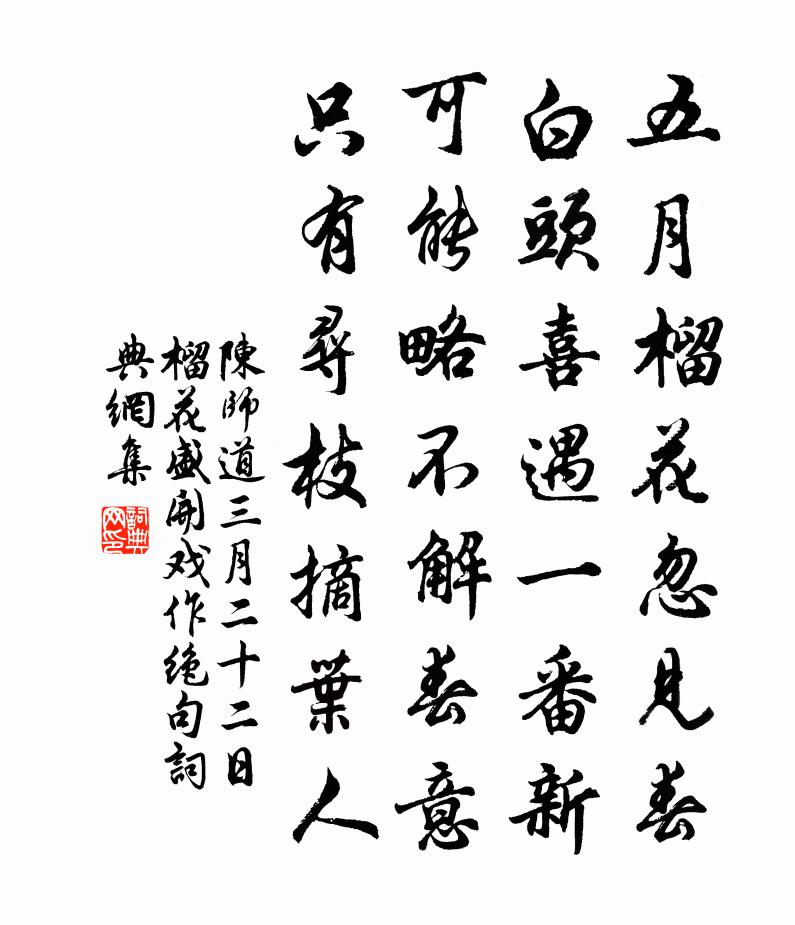 五月榴花忽見春
白頭喜遇一番新
可能略不解春意
只有尋枝摘葉人
陳師道三月二十二日
榴花盛開戏作絶句詞
典網集
詞典
网印